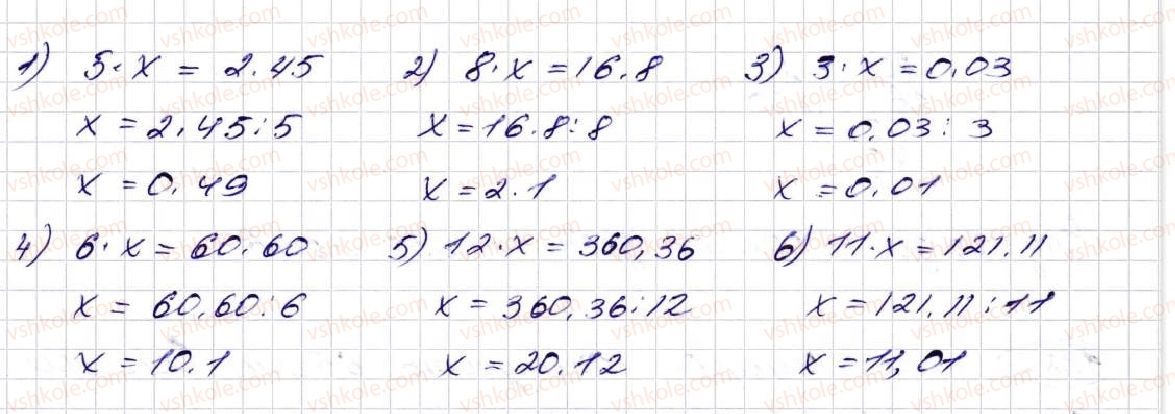 1) 5·x = 2.45 2) 8·x = 16.8 3) 3·x = 0.03
x = 2,45:5 x = 16.8:8 x = 0.03:3
x = 0.49 x = 2.1 x = 0.01
4) 6·x = 60.60 5) 12·x = 360,36 6) 11·x = 121.11
x = 60.60:6 x = 360.36:12 x = 121.11:11
x = 10.1 x = 20.12 x = 11,01
vshkole.com